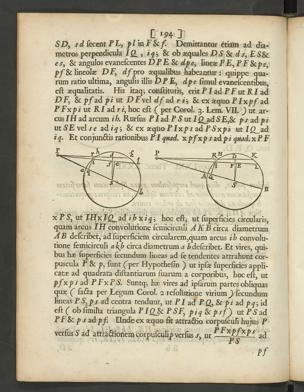 [ 194 ]
SD, sd secent PL, pl in F & f. Demittantur etiam ad dia-
metros perpendicula IQ, iq; & ob æquales DS & ds, ES &
es, & angulos evanescentes DPE & dpe, lineæ PE, PF & pe,
pf & lineolæ DF, df pro æqualibus habeantur: quippe qua-
rum ratio ultima, angulis illis DPE, dpe simul evanescentibus,
est æqualitatis. His itaq; constitutis, erit PI ad PF ut RI ad
DF, & pf ad pi ut DF vel df ad ri; & ex æquo PI×pf ad
PF×pi ut RI ad ri, hoc est ( per Corol. 3. Lem. VII. ) ut ar-
cus IH ad arcum ih. Rursus PI ad PS ut IQ ad SE, & ps ad pi
ut SE vel se ad iq; & ex æquo PI×ps ad PS×pi ut IQ ad
iq. Et conjunctis rationibus PI quad.×pf×ps ad pi quad.×PF
×PS, ut IH×IQ ad ih×iq; hoc est, ut superficies circularis,
quam arcus IH convolutione semicirculi AKB circa diametrum
AB describet, ad superficiem circularem, quam arcus ih convolu-
tione semicirculi akb circa diametrum ab describet. Et vires, qui-
bus hæ superficies secundum lineas ad se tendentes attrahunt cor-
puscula P & p, sunt ( per Hypothesin ) ut ipsæ superficies appli-
catæ ad quadrata distantiarum suarum a corporibus, hoc est, ut
pf×ps ad PF×PS. Suntq; hæ vires ad ipsarum partes obliquas
quæ ( facta per Legum Corol. 2 resolutione virium ) secundum
lineas PS, ps ad centra tendunt, ut PI ad PQ, & pi ad pq; id
est ( ob similia triangula PIQ & PSF, piq & psf ) ut PS ad
PF & ps ad pf. Unde ex æquo fit attractio corpusculi hujus P
versus S ad attractionem corpusculi p versus s, ut PF×pf×ps / PS ad
pf